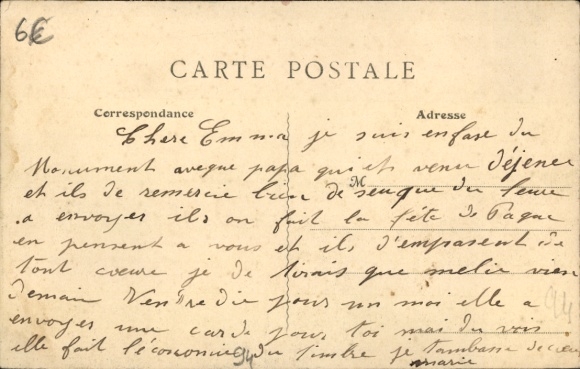 6€
CARTE POSTALE
Correspondance
Adresse
Chere Emma je suis en fase du
Monument aveque papa qui et venu déjener
M
et ils de remercie bien de seuque du leure
a envoyer ils on fait la féte de Paque
en pensent a vous et ils d'emprasent de
tout cœure je de dirais que melie vien
demain Ventredie pour un moi elle a
envoyer une carde pour toi mai du vois
elle fait l'économie du timbre je tambasse de cœur
marie
94
94